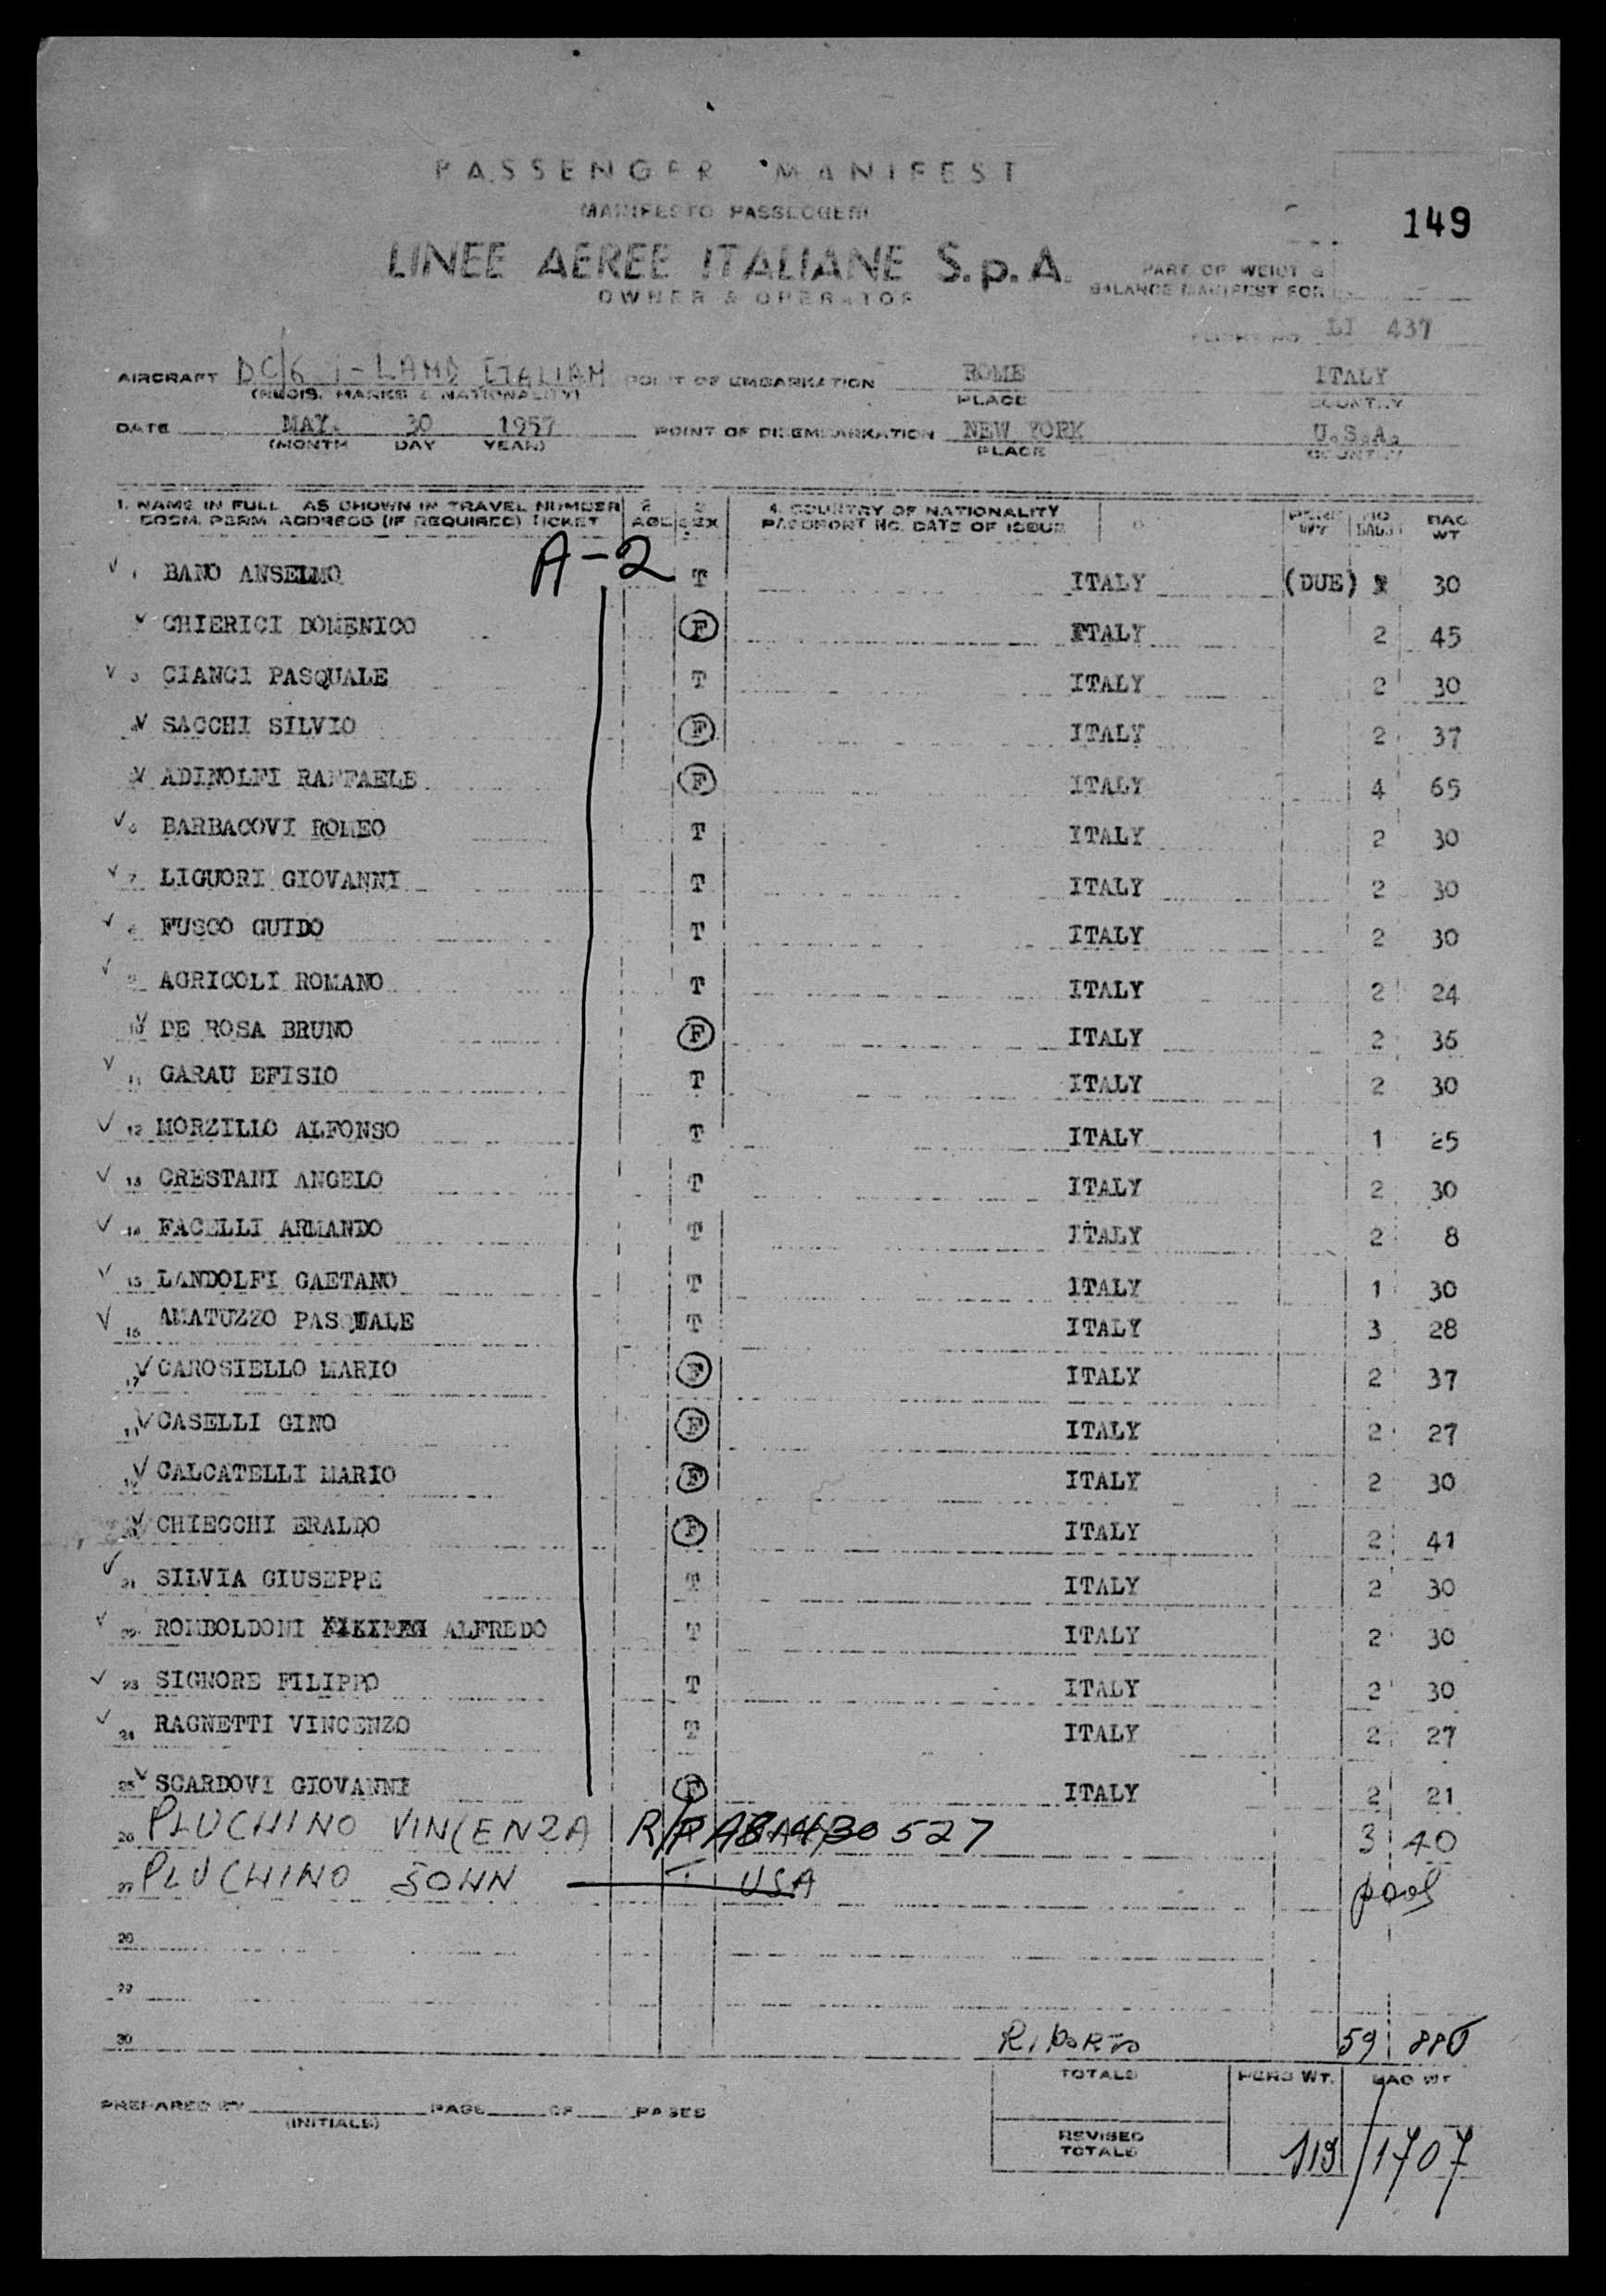 PASSENGER MANIFEST
MANIFESTO PASSEGGERI
149
LINEE AEREE ITALIANE S.p.A.
OWNER & OPERATOR
PART OF WEIGT &
BALANCE MANIFEST FOR
FLIGHT NO. LI 437
AIRCRAFT DC/6 I-LAND ITALIAN POINT OF EMBARKATION ROME ITALY
(REGIS. MARKS & NATIONALITY) PLACE COUNTRY
DATE MAY. 30 1957 POINT OF DISEMBARKATION NEW YORK U.S.A.
(MONTH DAY YEAR) PLACE COUNTRY
1. NAME IN FULL AS SHOWN IN TRAVEL NUMBER 2 3 4. COUNTRY OF NATIONALITY PERS NO BAG
DOCM. PERM. ADDRESS (IF REQUIRED) TICKET AGE SEX PASSPORT NO. DATE OF ISSUE WT BAGS WT
A-2
1 BANO ANSELMO T ITALY (DUE) 30
CHIERICI DOMENICO F ITALY 2 45
3 CIANCI PASQUALE T ITALY 2 30
SACCHI SILVIO F ITALY 2 37
ADINOLFI RAFFAELE F ITALY 4 65
6 BARBACOVI ROMEO T ITALY 2 30
7 LIGUORI GIOVANNI T ITALY 2 30
8 FUSCO GUIDO T ITALY 2 30
9 AGRICOLI ROMANO T ITALY 2 24
10 DE ROSA BRUNO F ITALY 2 36
11 GARAU EFISIO T ITALY 2 30
12 MORZILLO ALFONSO T ITALY 1 25
13 CRESTANI ANGELO T ITALY 2 30
14 FACELLI ARMANDO T ITALY 2 8
15 LANDOLFI GAETANO T ITALY 1 30
16 AMATUZZO PASQUALE T ITALY 3 28
17 CAROSIELLO MARIO F ITALY 2 37
CASELLI GINO F ITALY 2 27
CALCATELLI MARIO F ITALY 2 30
CHIECCHI ERALDO F ITALY 2 41
21 SILVIA GIUSEPPE T ITALY 2 30
22 ROMBOLDONI ALFREDO T ITALY 2 30
23 SIGNORE FILIPPO T ITALY 2 30
24 RAGNETTI VINCENZO T ITALY 2 27
25 SCARDOVI GIOVANNI F ITALY 2 21
26 PLUCHINO VINCENZA R/P 527 3 40
27 PLUCHINO JOHN T USA pool
28
29
30 RIPORTO 59 880
TOTALS PERS WT. BAG WT
PREPARED BY PAGE OF PAGES
(INITIALS)
REVISED
TOTALS 119 / 1707